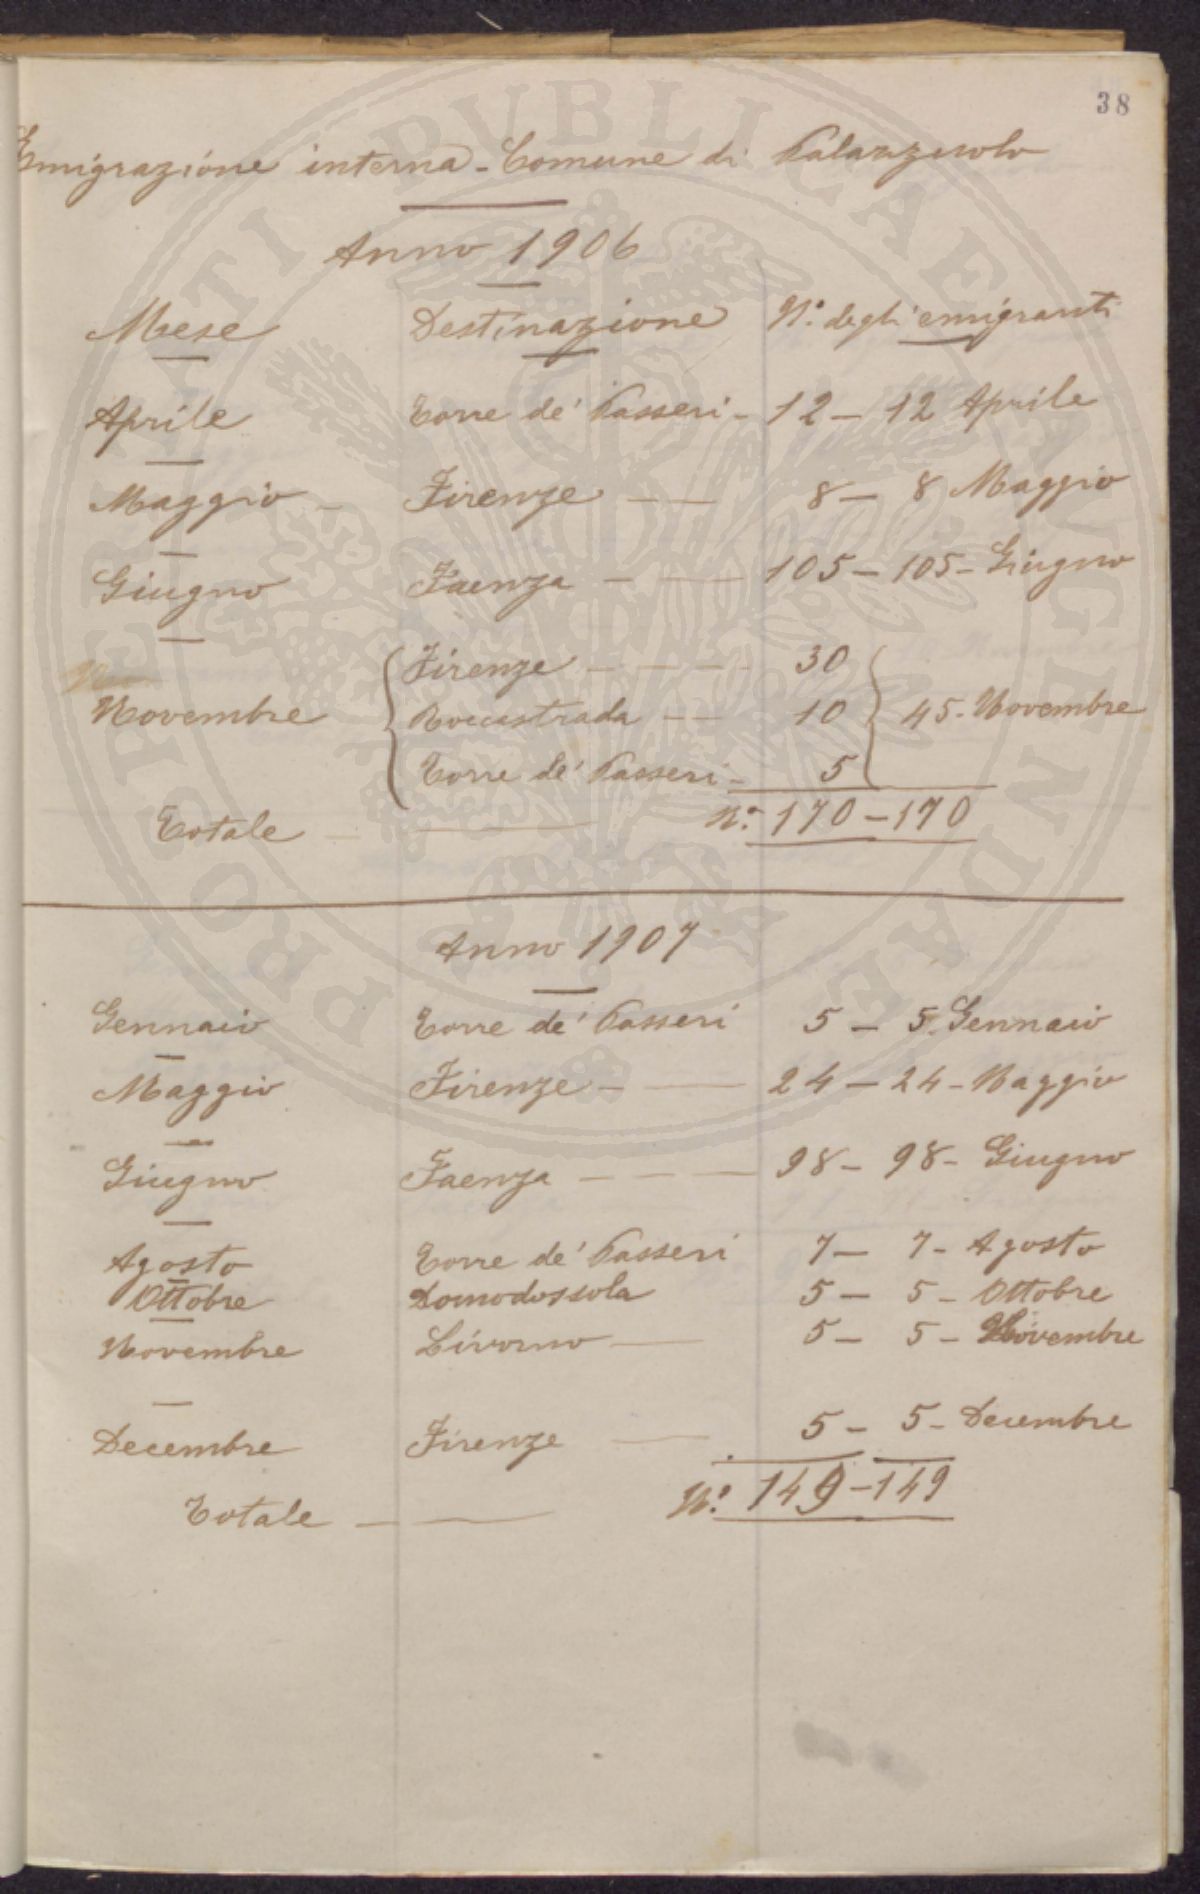 38
Emigrazione interna - Comune di Palazzuolo
Anno 1906
Mese Destinazione N.º degli emigranti
Aprile Torre de' Passeri - 12 - 12 Aprile
Maggio - Firenze - 8 - 8 Maggio
Giugno Faenza - 105 - 105 - Giugno
Firenze - 30
Novembre Roccastrada - 10 45 - Novembre
Torre de' Passeri - 5
Totale - N.º 170 - 170
Anno 1907
Gennaio Torre de' Passeri 5 - 5 Gennaio
Maggio Firenze - 24 - 24 - Maggio
Giugno Faenza - 98 - 98 - Giugno
Agosto Torre de' Passeri 7 - 7 - Agosto
Ottobre Domodossola 5 - 5 - Ottobre
Novembre Livorno - 5 - 5 - Novembre
Decembre Firenze - 5 - 5 - Decembre
Totale - N.º 149 - 149
PROSPERITATI PUBLICAE AUGENDAE